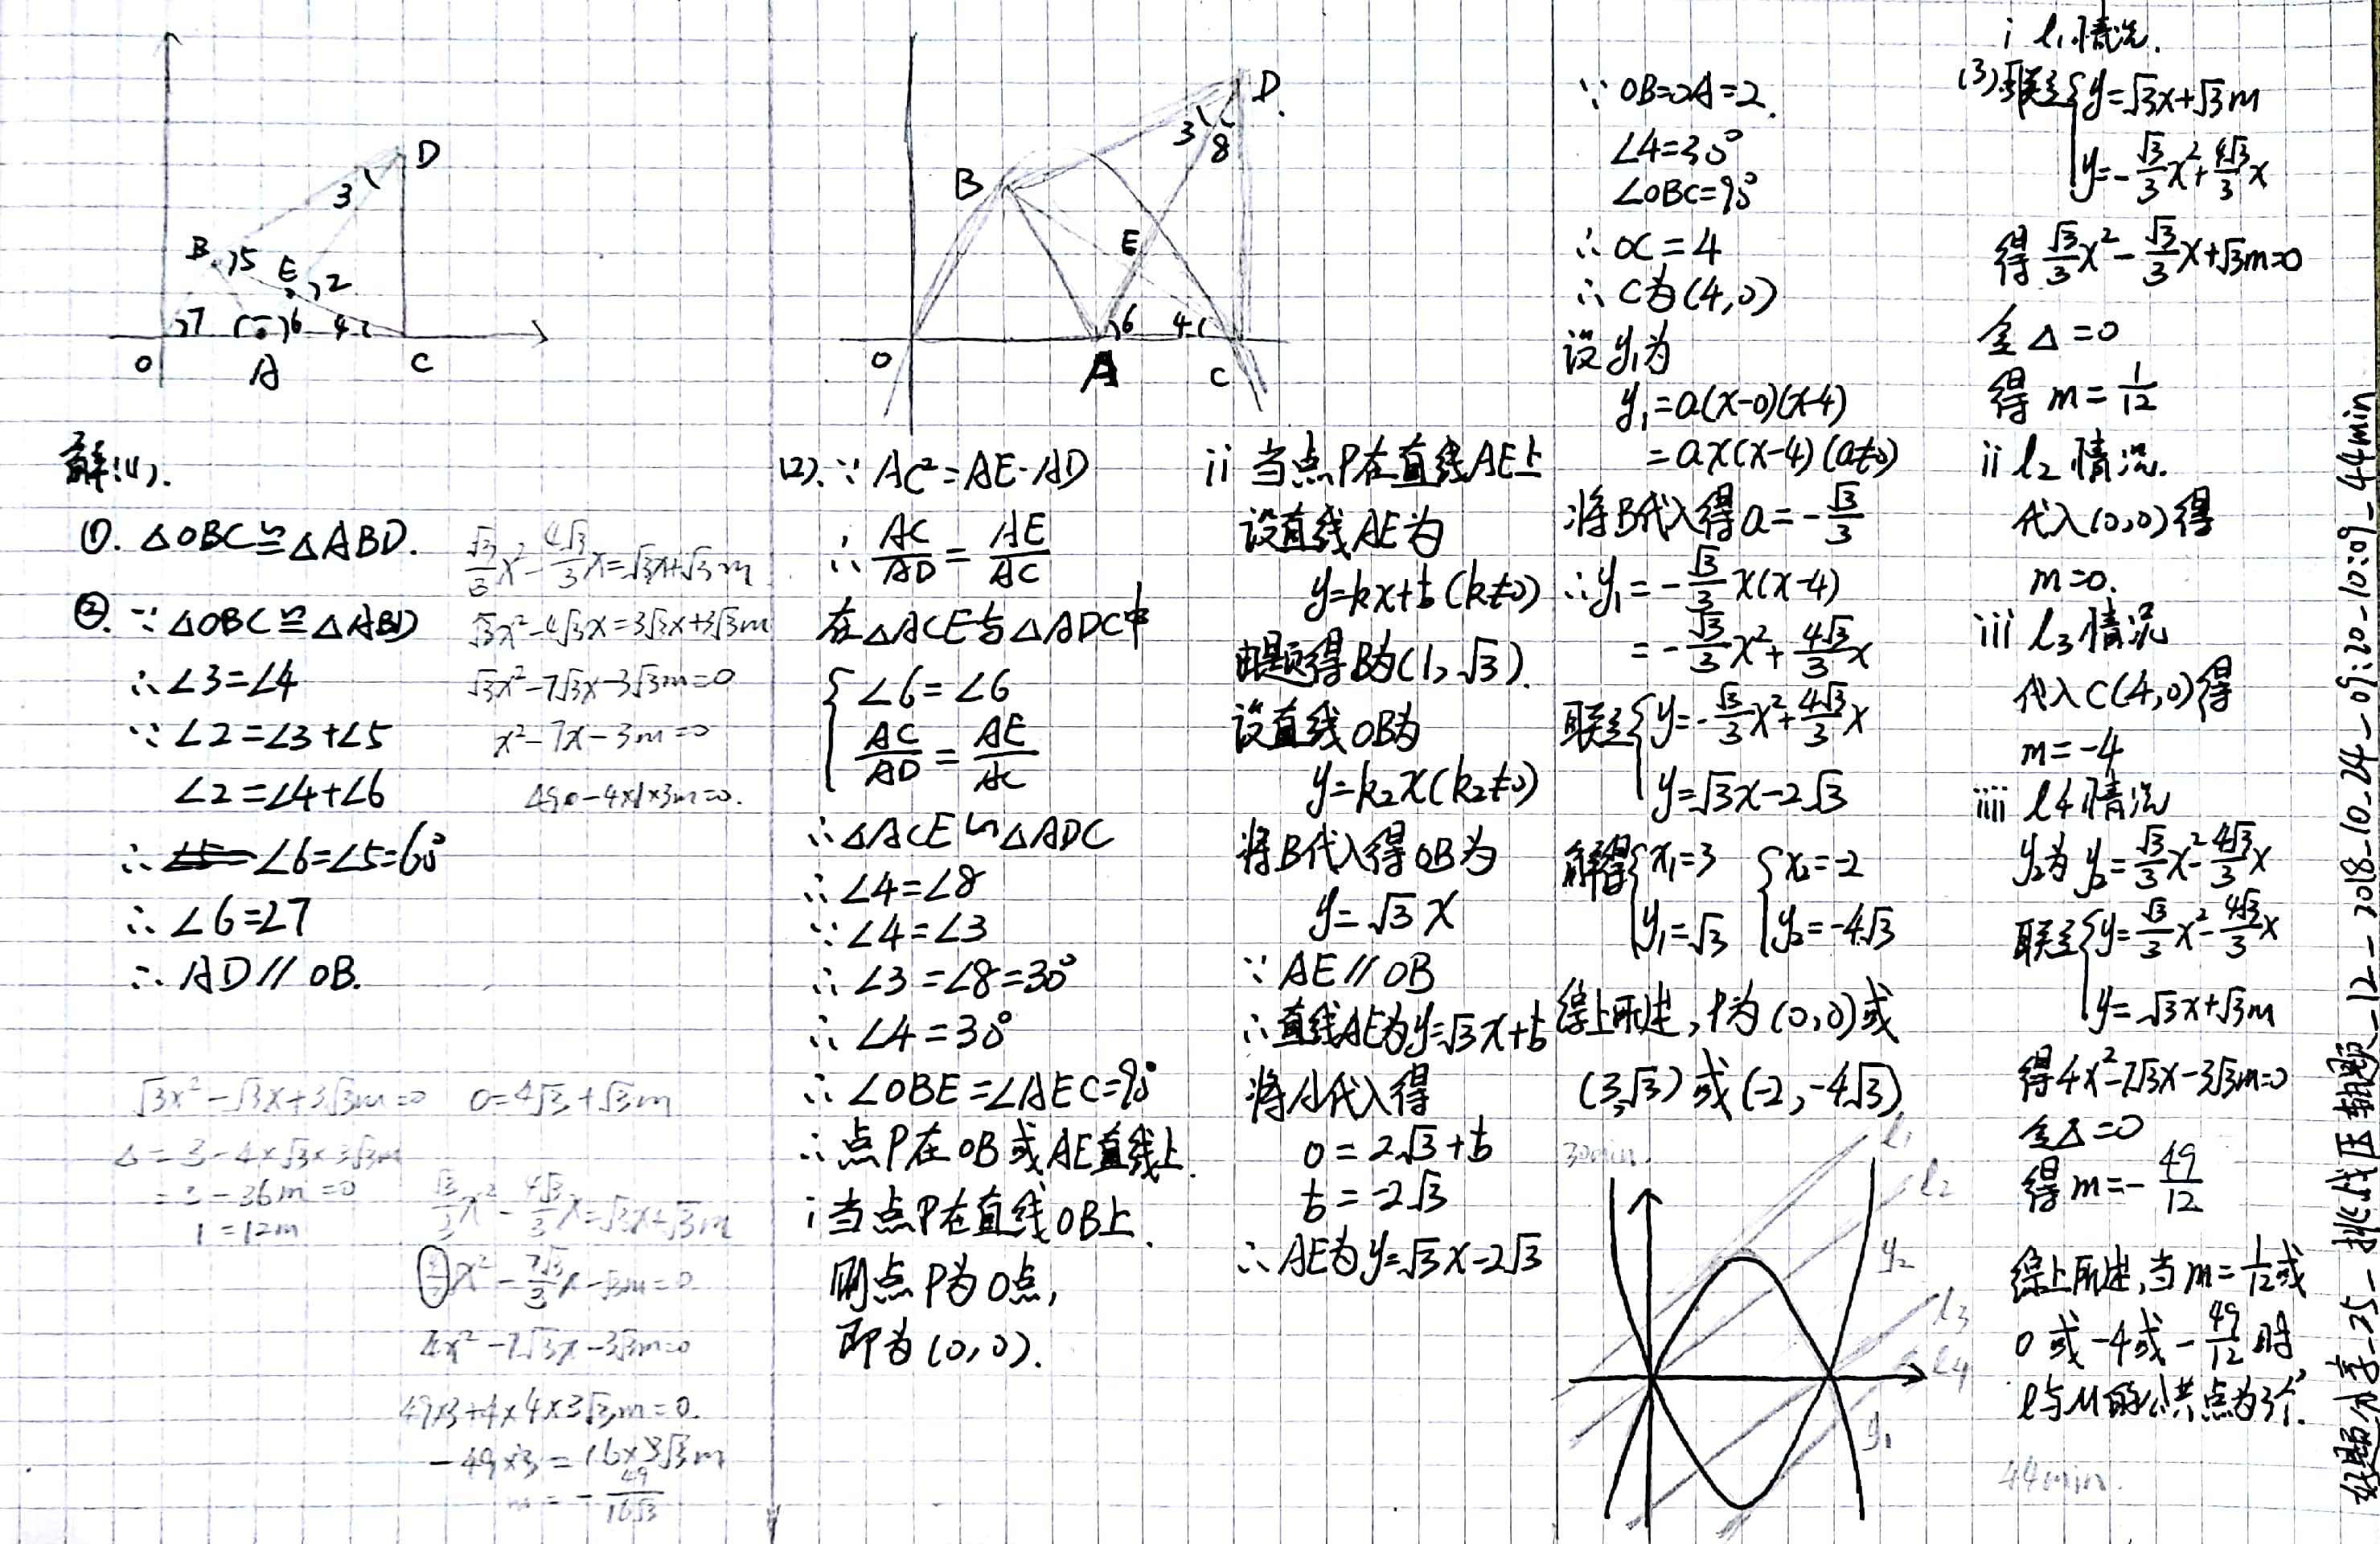 D
3
B
5
E
2
7
6
4
O
A
C
解:(1).
①. △OBC≌△ABD.
②. ∵ △OBC≌△ABD
∴ ∠3=∠4
∵ ∠2=∠3+∠5
∠2=∠4+∠6
∴ ∠6=∠5=60°
∴ ∠6=∠7
∴ AD // OB.
√3/3x²-4√3/3x=√3x+√3m
√3x²-4√3x=3√3x+3√3m
√3x²-7√3x-3√3m=0
x²-7x-3m=0
√3x²-√3x+3√3m=0
0=4√3+√3m
△=3-4×√3×3√3m
=3-36m=0
1=12m
√3/3x²-4√3/3x=√3x+√3m
√3/3x²-7√3/3x-√3m=0
4x²-7√3x-3√3m=0
49×3+4×4×3√3m=0.
-49×3=16×3√3m
m=-49/16√3
D.
3
8
B
E
6
4
O
A
C
(2).∵ AC²=AE·AD
∴ AC/AD=AE/AC
在△ACE与△ADC中
{∠6=∠6
AC/AD=AE/AC
∴△ACE∽△ADC
∴∠4=∠8
∵∠4=∠3
∴∠3=∠8=30°
∴∠4=30°
∴∠OBE=∠AEC=90°
∴点P在OB或AE直线上.
i当点P在直线OB上.
则点P为O点,
即为(0,0).
ii 当点P在直线AE上
设直线AE为
y=kx+b(k≠0)
由题得B为(1,√3).
设直线OB为
y=k₂x(k₂≠0)
将B代入得OB为
y=√3x
∵ AE // OB
∴直线AE为y=√3x+b
将A代入得
0=2√3+b
b=-2√3
∴AE为y=√3x-2√3
∵ OB=OA=2.
∠4=30°
∠OBC=90°
∴ OC=4
∴ C为(4,0)
设y₁为
y₁=a(x-0)(x-4)
=ax(x-4)(a≠0)
将B代入得a=-√3/3
∴y₁=-√3/3x(x-4)
=-√3/3x²+4√3/3x
联立{y=-√3/3x²+4√3/3x
y=√3x-2√3
解得{x₁=3 {x₂=-2
y₁=√3 y₂=-4√3
综上所述,P为(0,0)或
(3,√3)或(-2,-4√3)
30min.
l₁
l₂
y₂
l₃
l₄
y₁
i l₁情况.
(3)联立{y=√3x+√3m
y=-√3/3x²+4√3/3x
得√3/3x²-√3/3x+√3m=0
令△=0
得 m=1/12
ii l₂情况.
代入(0,0)得
m=0.
iii l₃情况
代入C(4,0)得
m=-4
iiii l4情况
y₂为y₂=√3/3x²-4√3/3x
联立{y=√3/3x²-4√3/3x
y=√3x+√3m
得4x²-7√3x-3√3m=0
令△=0
得m=-49/12
综上所述,当m=1/12或
0或-4或-49/12时,
l与M的公共点为3个.
44min.
好题分享-25-挑战压轴题-12-2018-10-24-09:20-10:09-44min